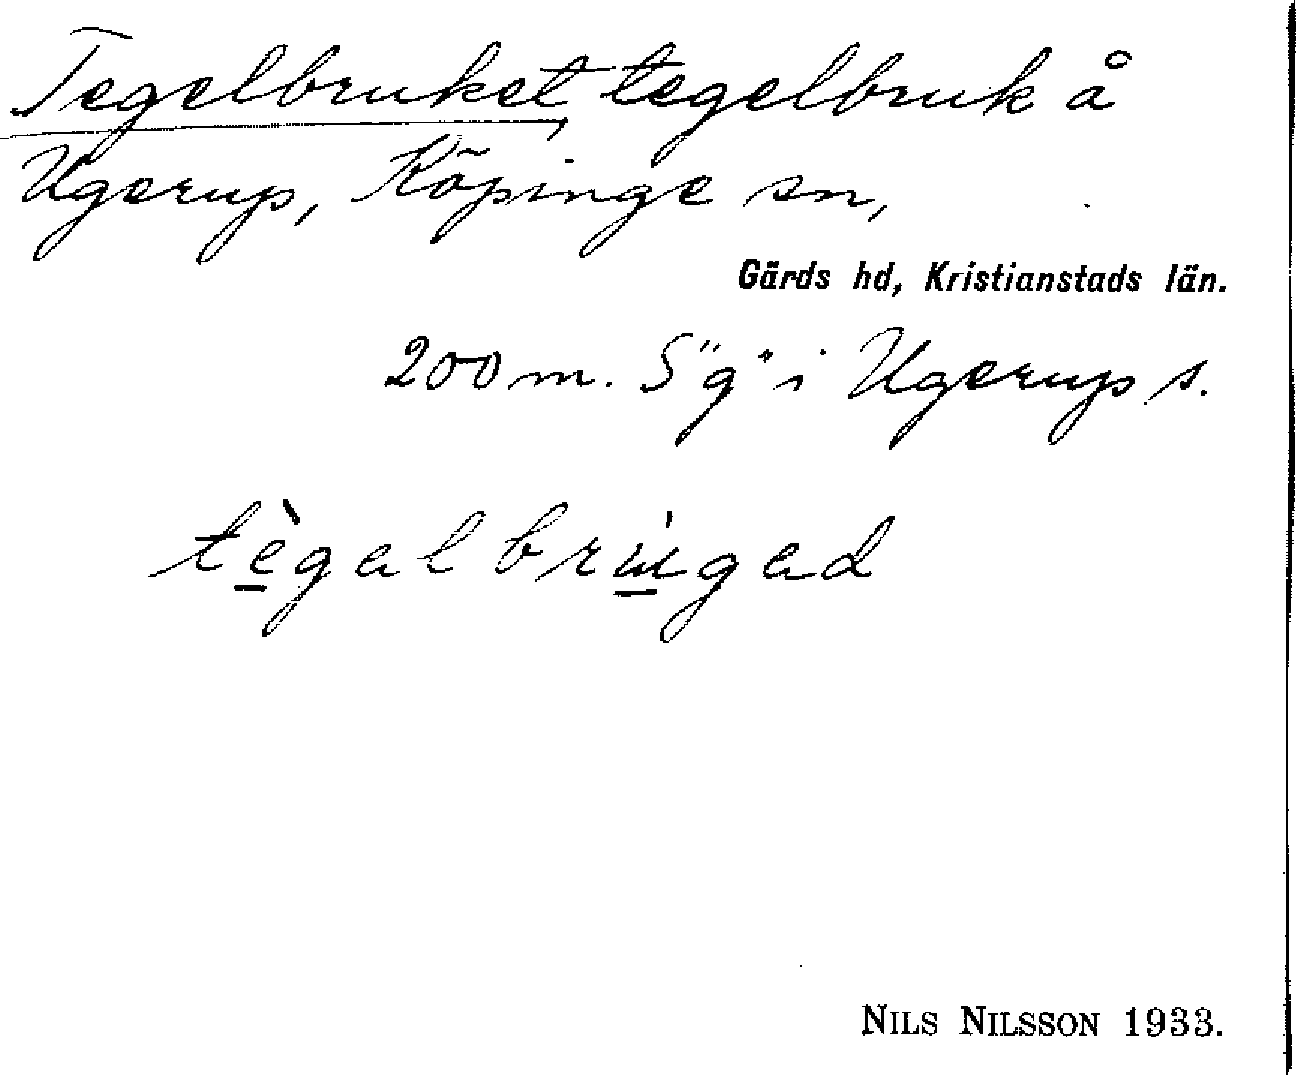 Tegelbruket, tegelbruk å
Ugerup, Köpinge sn,
Gärds hd, Kristianstads län.
200 m. S "g" i Ugerup s.
tègal brúgad
NILS NILSSON 1933.